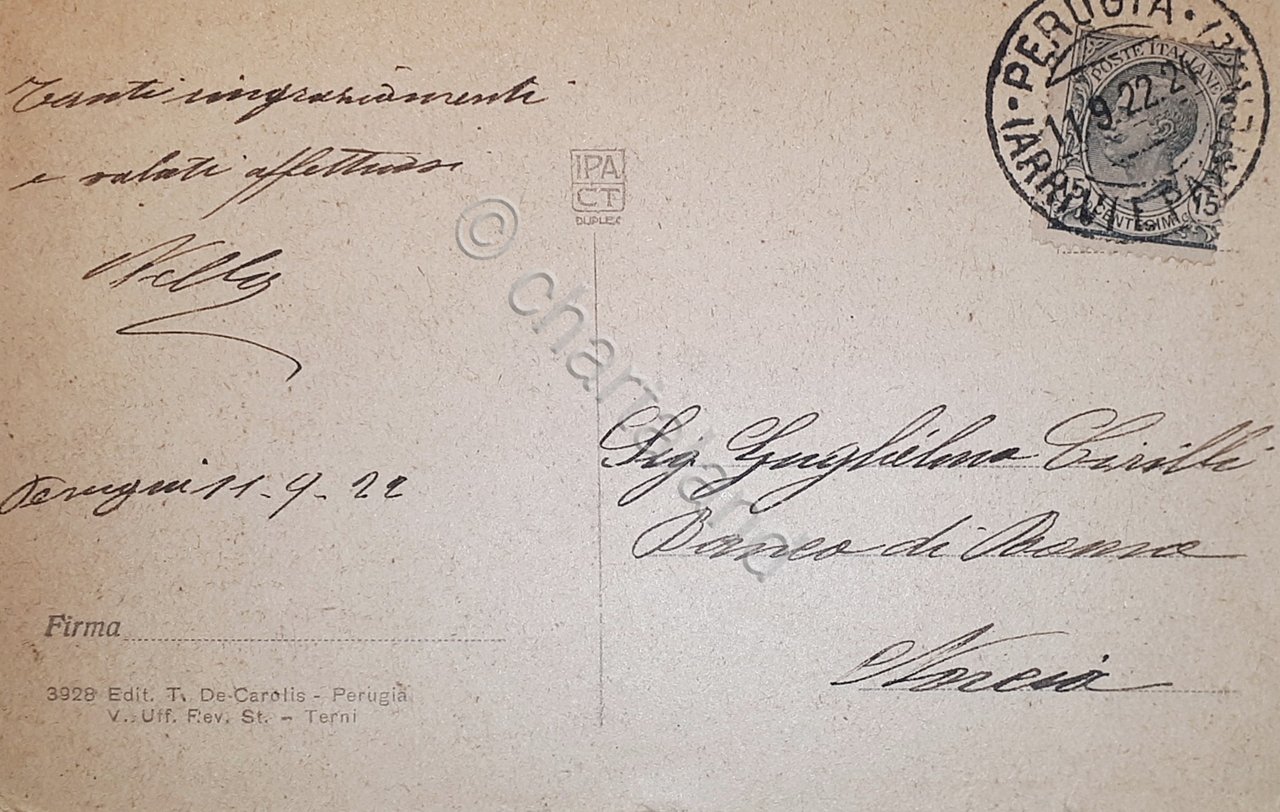 Tanti ringraziamenti
e saluti affettuosi
Nello
Perugia 11-9-22
Firma
3928 Edit. T. De Carolis - Perugia
V. Uff. Rev. St. - Terni
IPA
CT
DUPLEX
PERUGIA
11.9.22.2
POSTE ITALIANE
15
CENTESIMI
15
Sig. Guglielmo Cirilli
Banco di Roma
Norcia
© chartaland